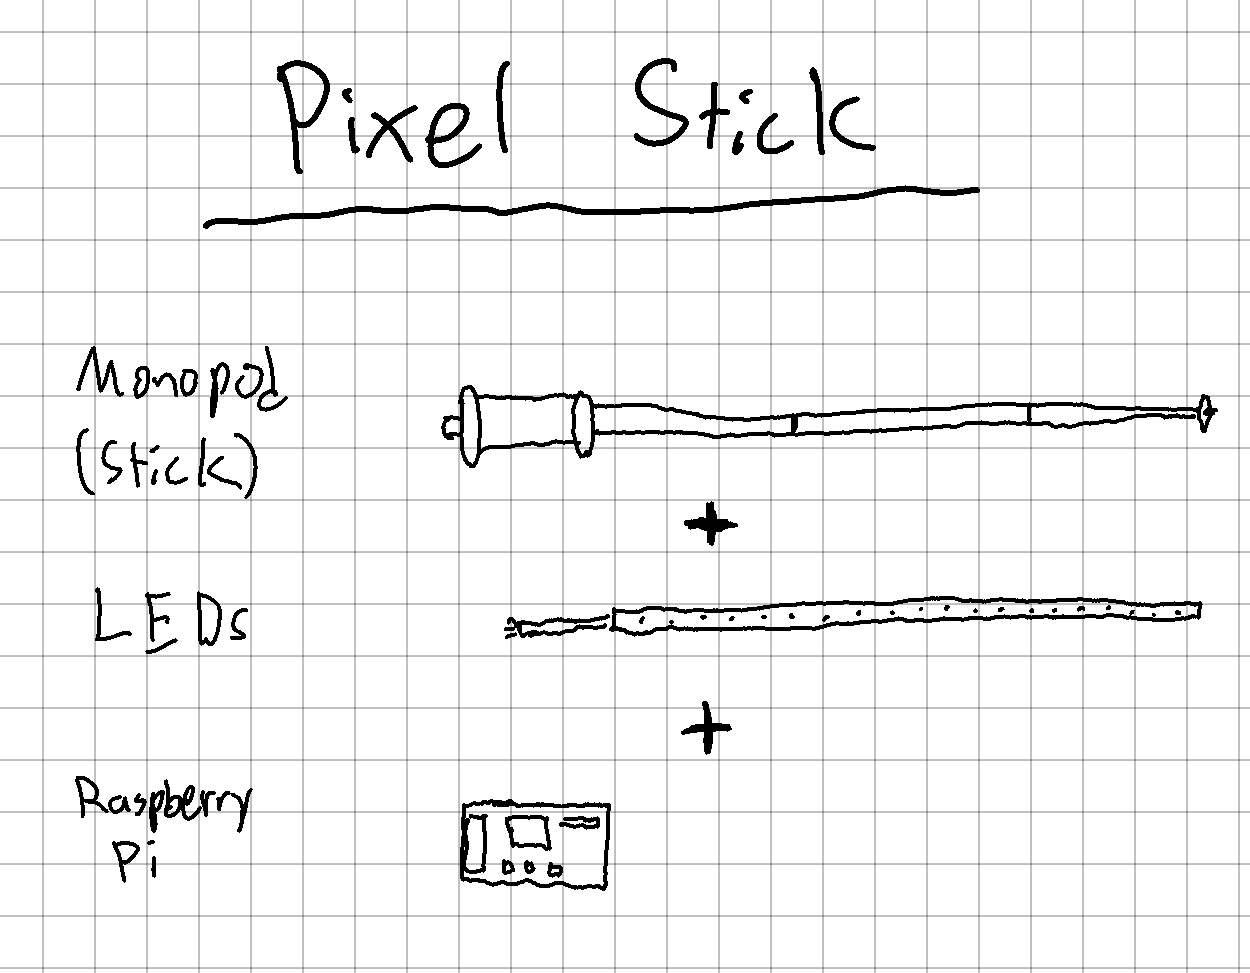 Pixel Stick
Monopod
(Stick)
+
LEDs
+
Raspberry
Pi